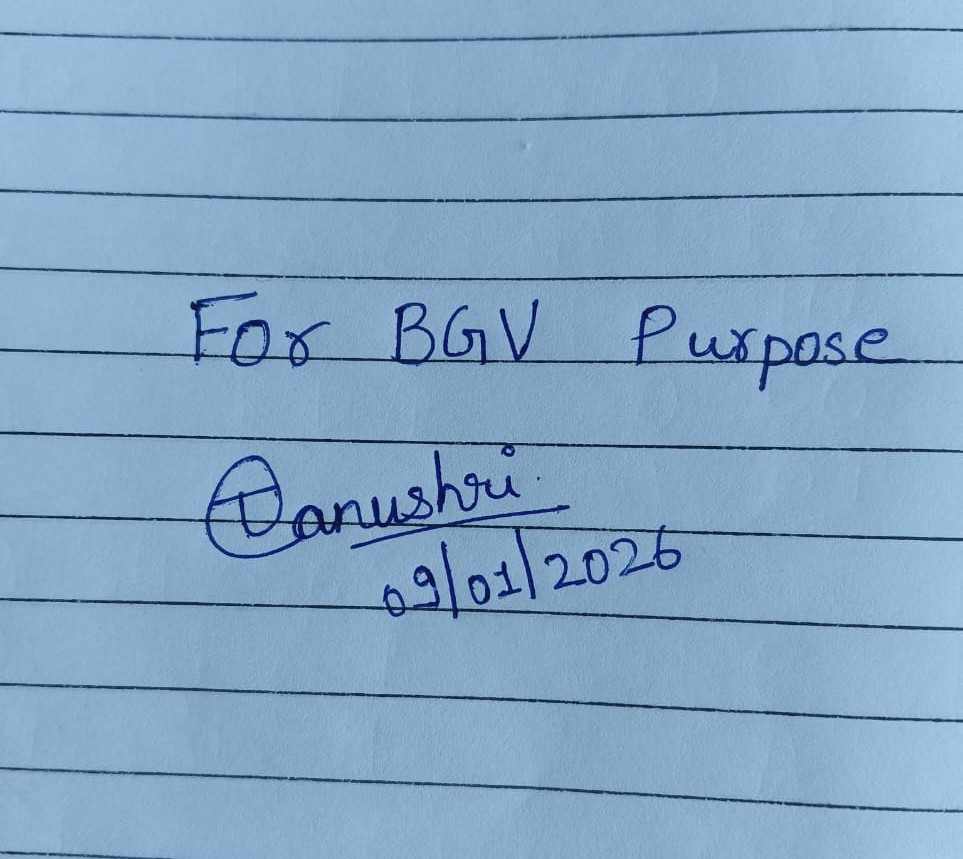 For BGV Purpose
Tanushri
09/01/2026